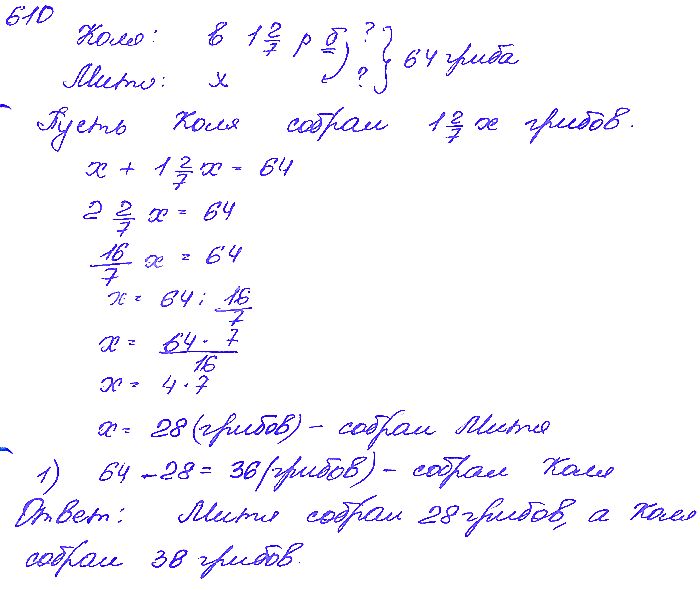 610
Коля: в 1 2/7 р б. ? } 64 гриба
Митя: х ?
Пусть Коля собрал 1 2/7 х грибов.
х + 1 2/7 х = 64
2 2/7 х = 64
16/7 х = 64
х = 64 : 16/7
х = 64 · 7/16
х = 4 · 7
х = 28 (грибов) - собрал Митя
1) 64 - 28 = 36 (грибов) - собрал Коля
Ответ: Митя собрал 28 грибов, а Коля
собрал 38 грибов.